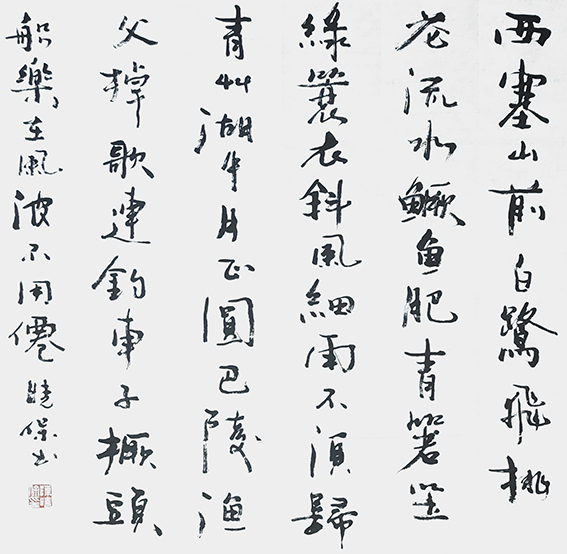 西塞山前白鷺飛桃
花流水鱖魚肥青箬笠
綠簑衣斜風細雨不須歸
青艸湖中月正圓巴陵漁
父棹歌連釣車子橛頭
船樂在風波不用僊 曉保书